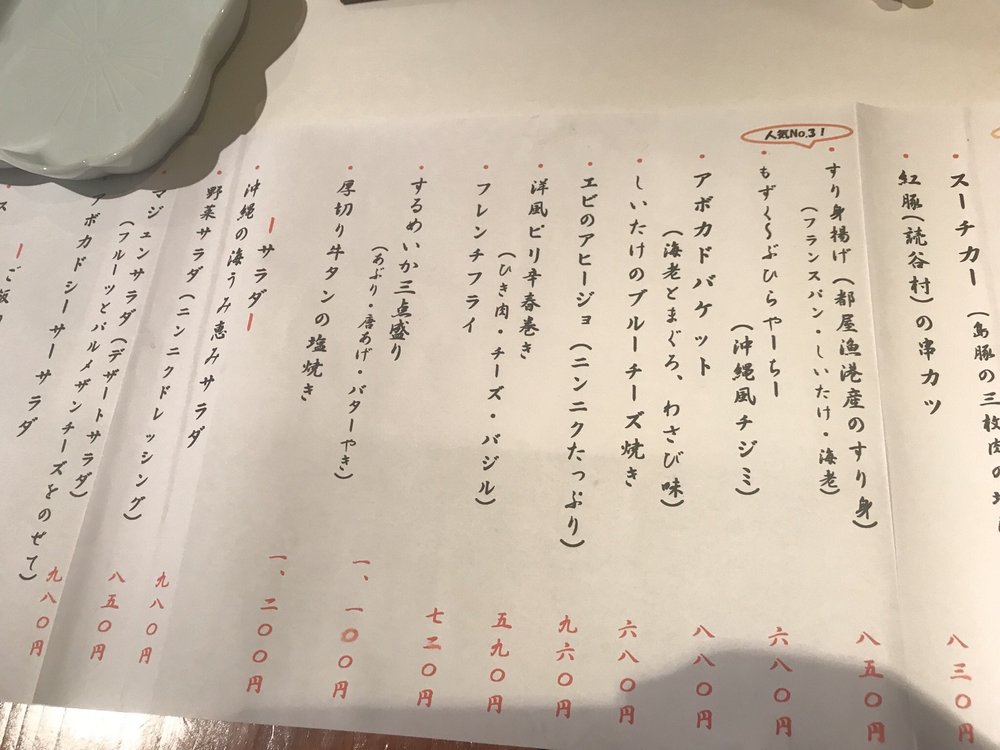 スーチカー(島豚の三枚肉の
・紅豚(読谷村)の串カツ 八三〇円
・すり身揚げ(都屋漁港産のすり身) 八五〇円
(フランスパン・しいたけ・海老)
人気No.3!
・もずく〜ぶひらやーちー 六八〇円
(沖縄風チジミ)
・アボカドバケット 八八〇円
(海老とまぐろ、わさび味)
・しいたけのブルーチーズ焼き 六八〇円
・エビのアヒージョ(ニンニクたっぷり) 九六〇円
・洋風ピリ辛春巻き 五九〇円
(ひき肉・チーズ・バジル)
・フレンチフライ 七二〇円
・するめいか三点盛り 一、一〇〇円
(あぶり・唐あげ・バターやき)
・厚切り牛タンの塩焼き 一、二〇〇円
ーサラダー
・沖縄の海うみ恵みサラダ 九八〇円
・野菜サラダ(ニンニクドレッシング) 八五〇円
・マジェンサラダ(デザートサラダ) 九八〇円
(フルーツとパルメザンチーズをのせて)
アボカドシーサーサラダ
ーご飯